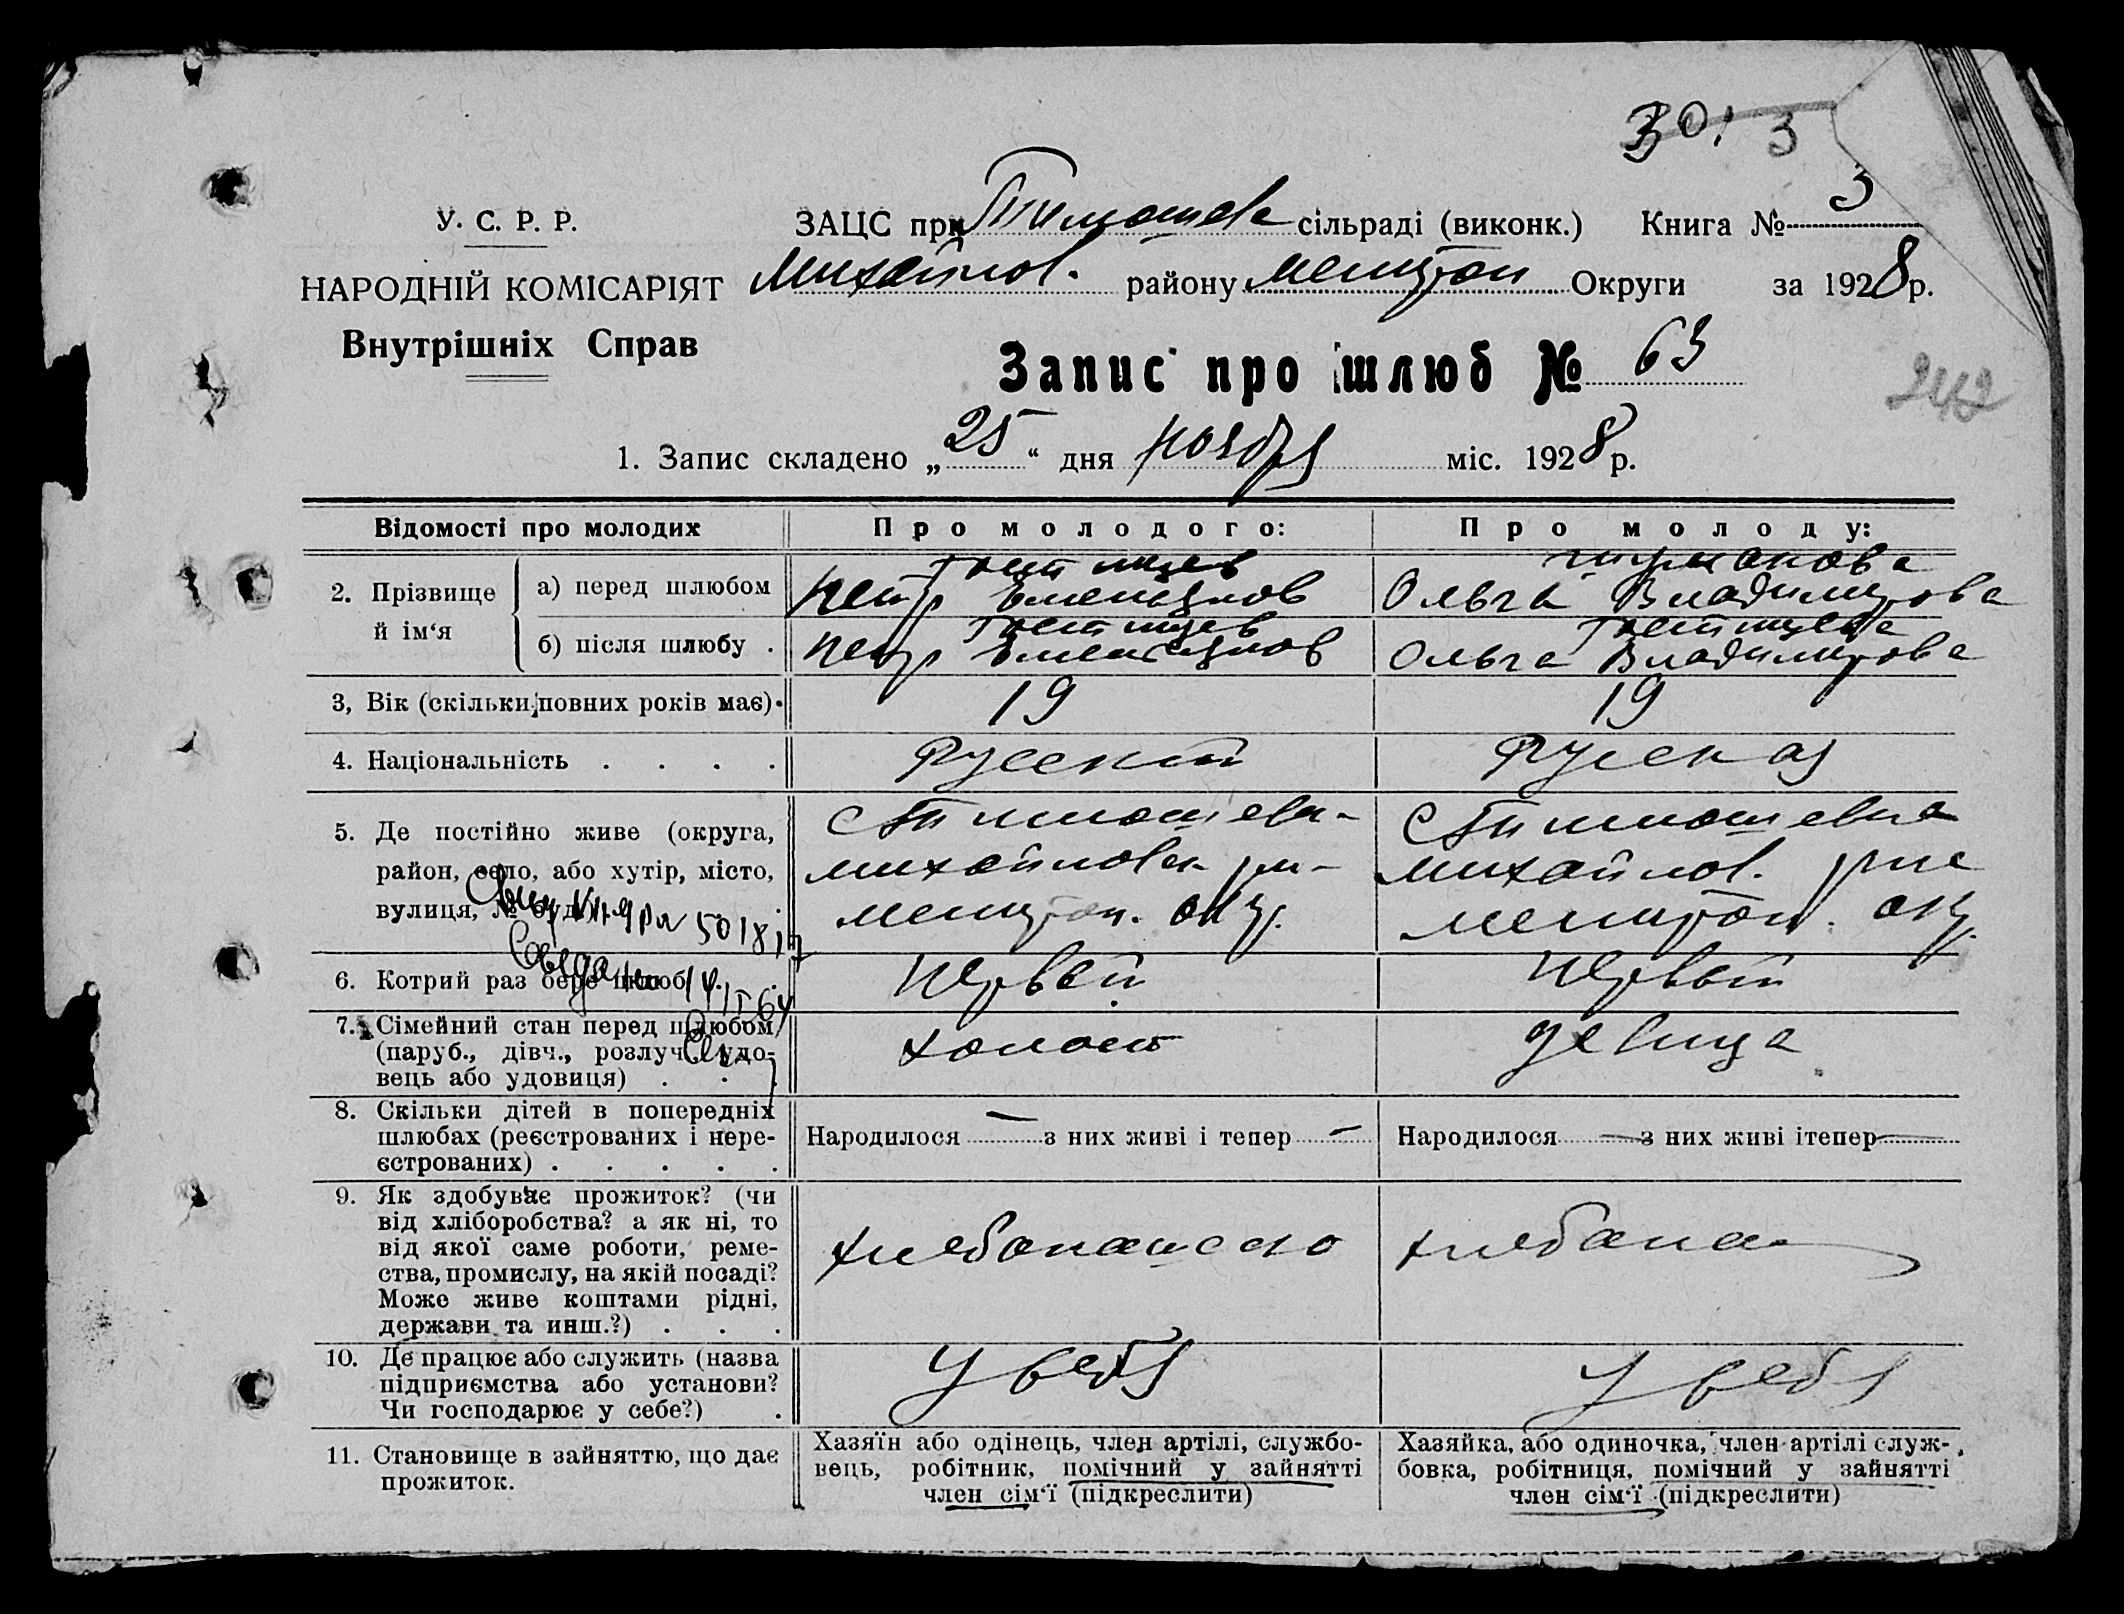 30! 3
У. С. Р. Р.
ЗАЦС при Тимошев сільраді (виконк.) Книга № 3
НАРОДНІЙ КОМІСАРІЯТ
Михайлов. району Мелитоп Округи за 1928 р.
Внутрішніх Справ
Запис про шлюб № 63
242
1. Запис складено „25“ дня ноября міс. 1928 р.
Відомості про молодих
Про молодого:
Про молоду:
2. Прізвище й ім‘я
а) перед шлюбом
Гостищев
Петр Емельянов
Ольга Владимирова
б) після шлюбу .
Гостищев
Петр Емельянов
Гостищева
Ольга Владимирова
3, Вік (скільки повних років має).
19
19
4. Національність . . . .
Русский
Руская
5. Де постійно живе (округа,
район, село, або хутір, місто,
вулиця, № буд.)
С Тимошевк-
михайловск рн-
мелитоп. окр.
С Тимошевка
михайлов. рне
мелитоп. окр.
6. Котрий раз бере шлюб . .
Первый
Первый
7. Сімейний стан перед шлюбом
(паруб., дівч., розлуч. удо-
вець або удовиця) . . .
холост
девица
8. Скільки дітей в попередніх
шлюбах (реєстрованих і нере-
єстрованих) . . . . .
Народилося — з них живі і тепер —
Народилося — з них живі ітепер —
9. Як здобуває прожиток? (чи
від хліборобства? а як ні, то
від якої саме роботи, реме-
ства, промислу, на якій посаді?
Може живе коштами рідні,
держави та инш.?) . . .
хлебопашество
хлебопа
10. Де працює або служить (назва
підприємства або установи?
Чи господарює у себе?) .
У себя
У себя
11. Становище в зайняттю, що дає
прожиток.
Хазяїн або одінець, член артілі, службо-
вець, робітник, помічний у зайнятті
член сім‘ї (підкреслити)
Хазяйка, або одиночка, член артілі служ-
бовка, робітниця, помічний у зайнятті
член сім‘ї (підкреслити)